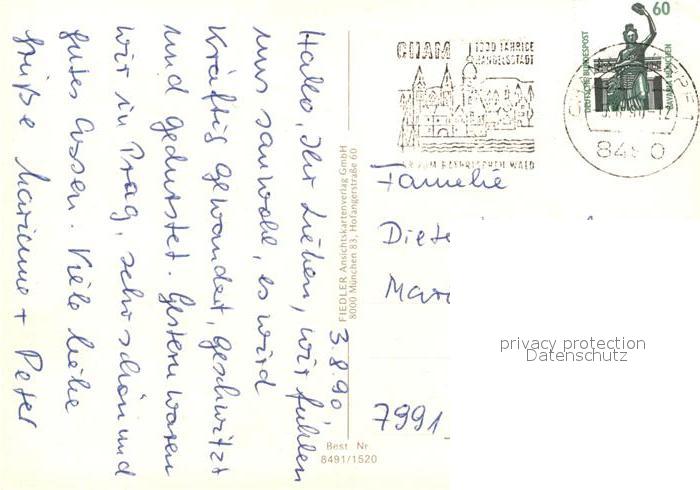 3.8.90,
Hallo, Ihr Lieben, wir fühlen
uns sauwohl, es wird
kräftig gewandert, geschwitzt
und gedurstet. Gestern waren
wir in Prag, sehr schön und
gutes Essen. Viele liebe
Grüße Marianne + Peter
FIEDLER Ansichtskartenverlag GmbH
8000 München 83, Hofangerstraße 60
Best Nr.
8491/1520
CHAM 1200 JÄHRIGE
HANDELSSTADT
ZUM BAYRISCHEN WALD
60
DEUTSCHE BUNDESPOST
BAVARIA MÜNCHEN
Familie
Diete
Mar
7991
privacy protection
Datenschutz